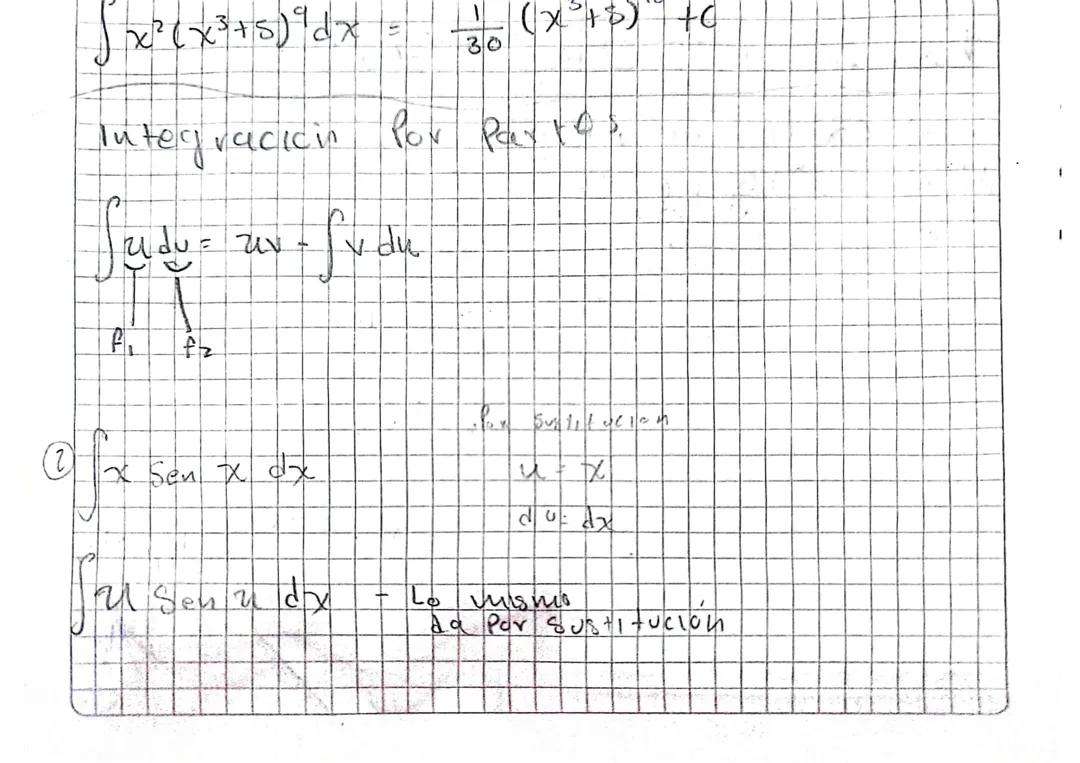 ∫ x²(x³+5)⁹dx = 1/30 (x³+5)¹⁰ +C
Integración Por Partes.
∫ u dv = uv - ∫ v du
f₁ f₂
Por sustitución
② ∫ x Sen x dx u = x
du = dx
∫ u Sen u dx - Lo mismo
da Por sustitución